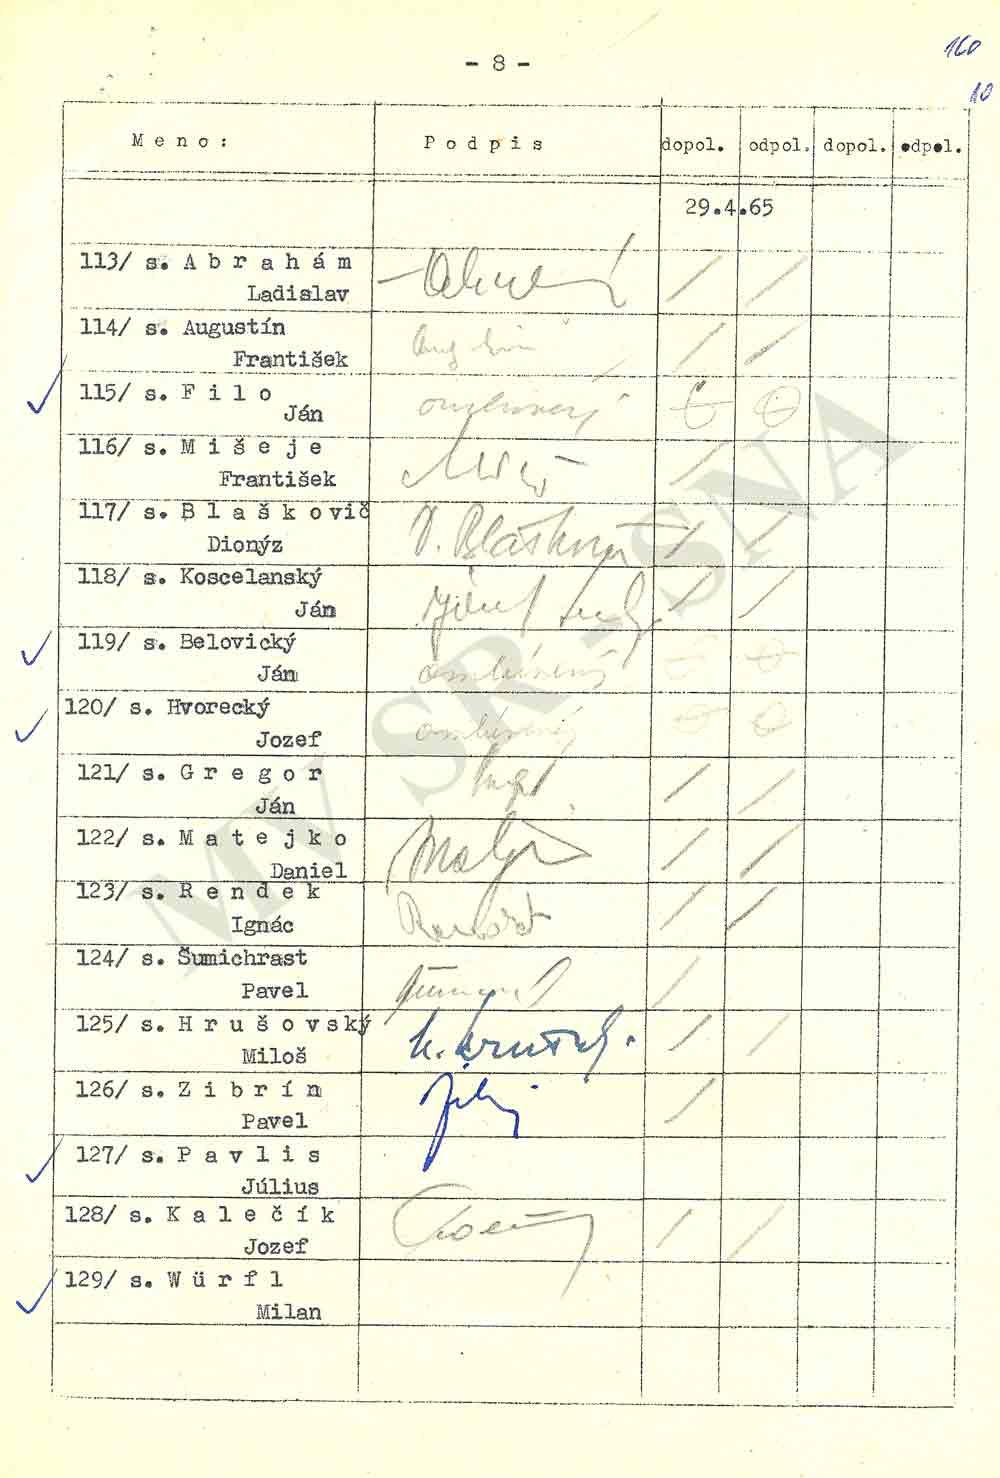 160
10
- 8 -
Meno: Podpis dopol. odpol. dopol. odpol.
29.4.65
113/ s. Abrahám
Ladislav
114/ s. Augustín
František
115/ s. Filo
Ján ospravedlnený
116/ s. Mišeje
František
117/ s. Blaškovič
Dionýz D. Blaškovič
118/ s. Koscelanský
Ján
119/ s. Belovický
Ján
120/ s. Hvorecký
Jozef
121/ s. Gregor
Ján
122/ s. Matejko
Daniel
123/ s. Rendek
Ignác
124/ s. Šumichrast
Pavel
125/ s. Hrušovský
Miloš
126/ s. Zibrín
Pavel
127/ s. Pavlis
Július
128/ s. Kalečík
Jozef
129/ s. Würfl
Milan
MV SR - SNA